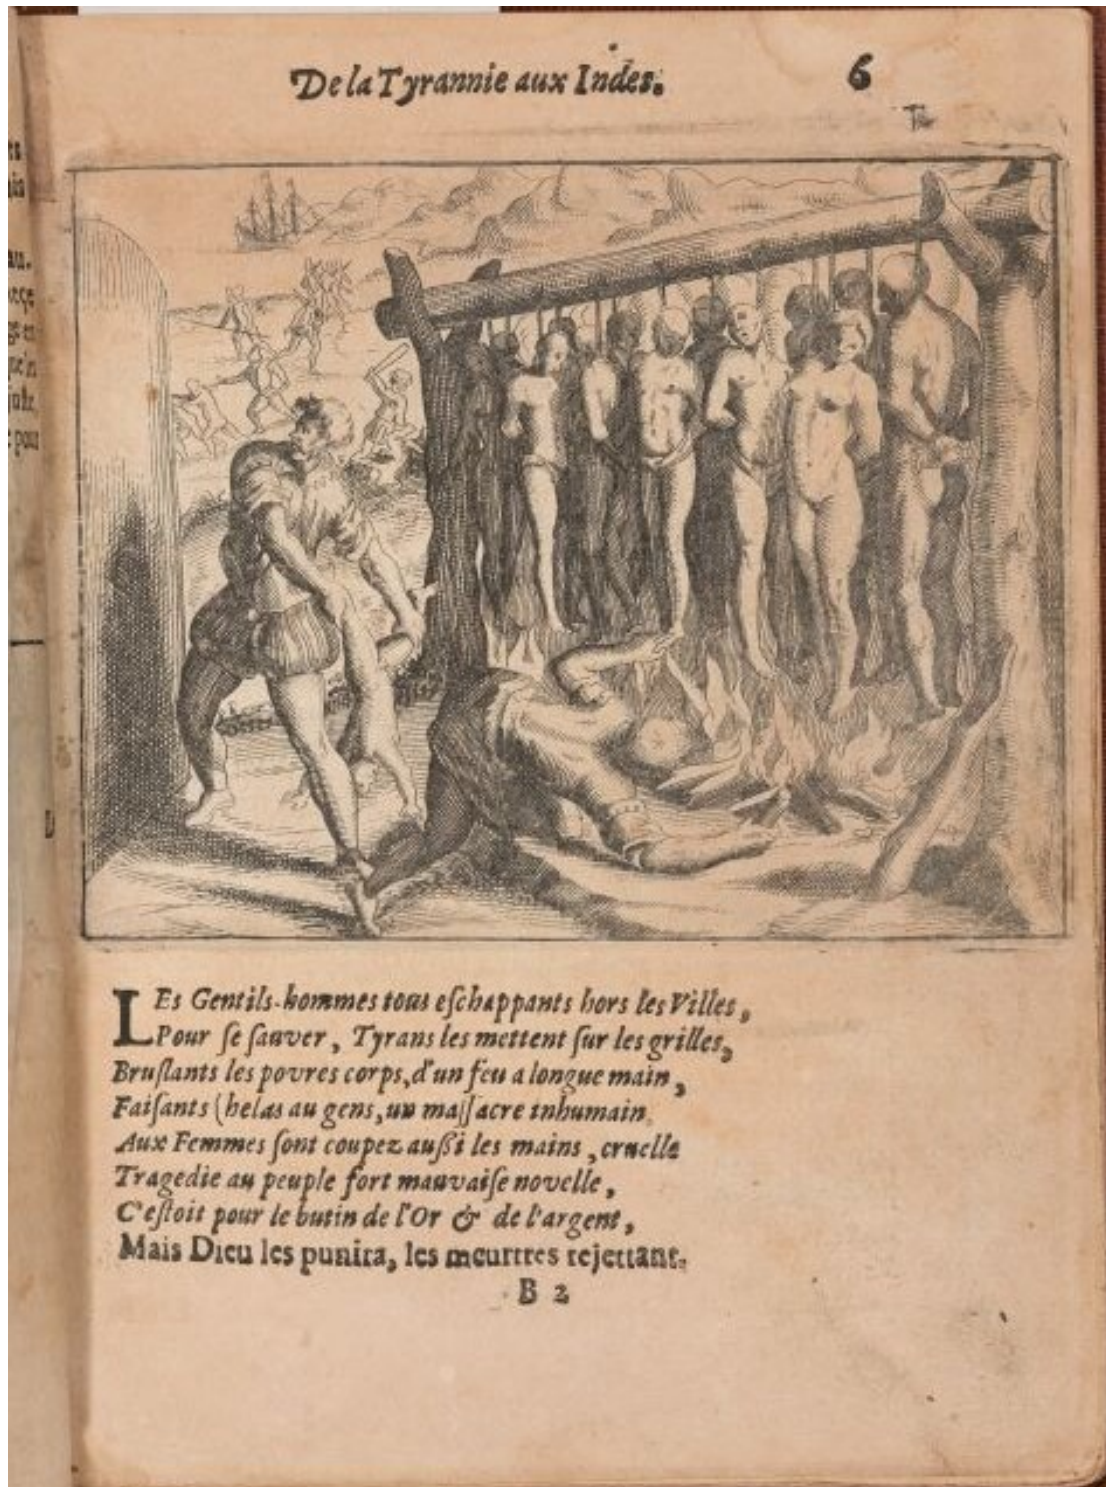 De la Tyrannie aux Indes.
6
LEs Gentils-hommes tous eſchappants hors les Villes,
Pour ſe ſauver, Tyrans les mettent ſur les grilles,
Bruſlants les povres corps, d'un feu a longue main,
Faiſants (helas au gens, un maſſacre inhumain.
Aux Femmes ſont coupez auſſi les mains, cruelle
Tragedie au peuple fort mauvaiſe novelle,
C'eſtoit pour le butin de l'Or & de l'argent,
Mais Dieu les punira, les meurtres rejettant.
B 2